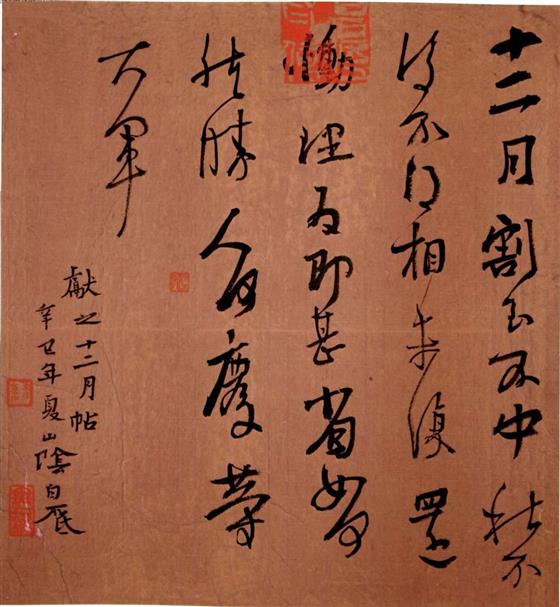 十二月割至不中秋不
復不得相未復還
慟理為即甚省如何
然勝人何慶等
大軍
獻之十二月帖
辛巳年夏山陰白